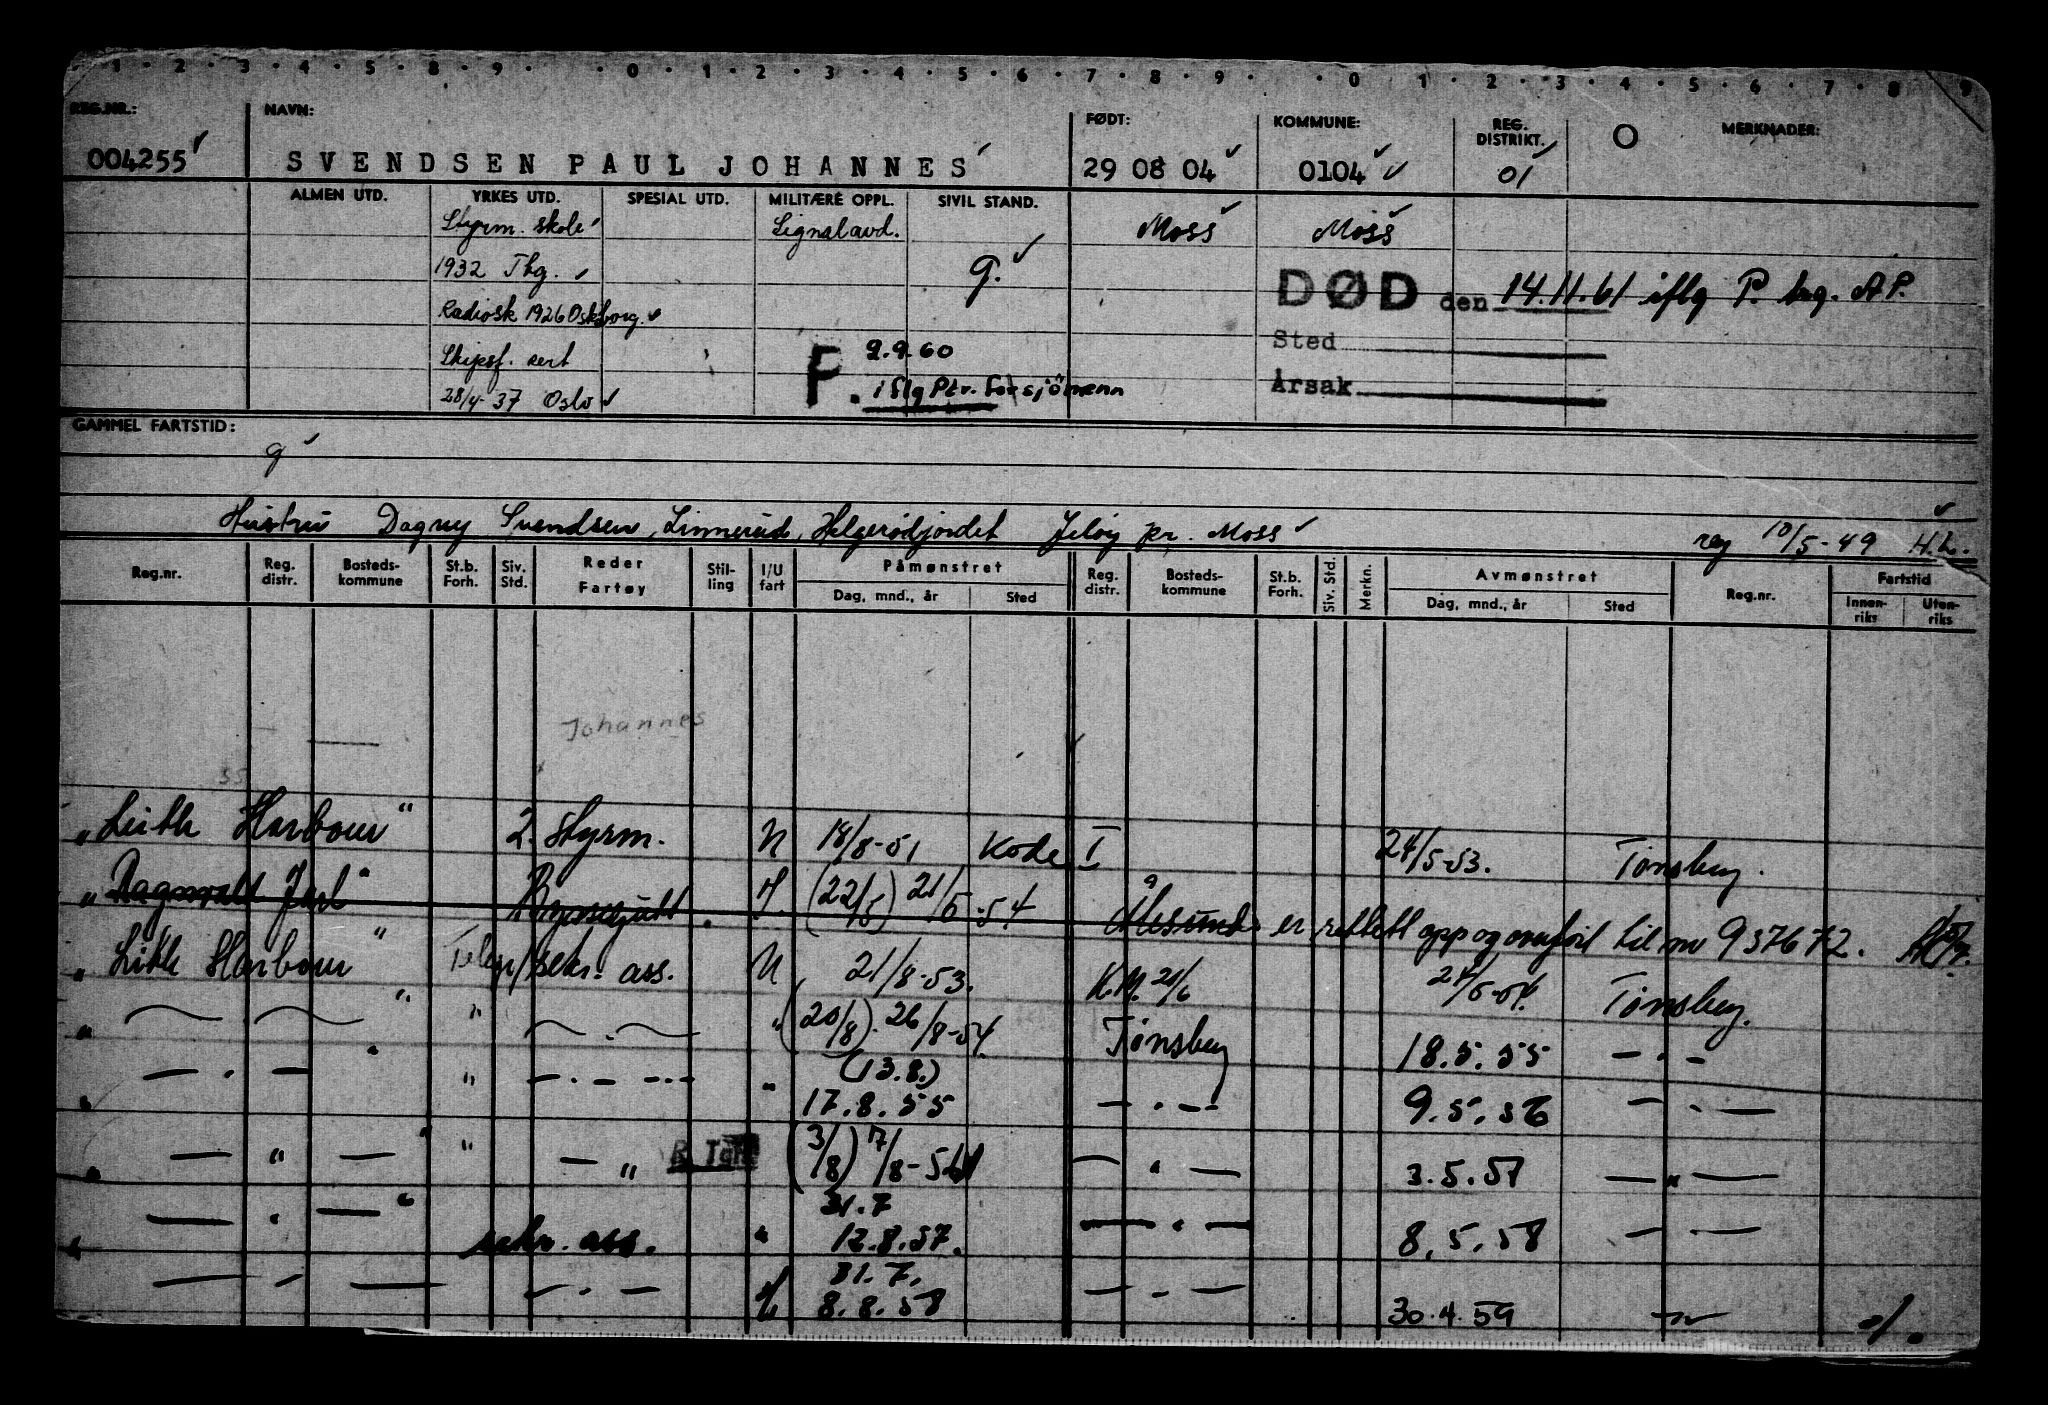 1 2 3 4 5 8 9 0 1 2 3 4 5 6 7 8 9 0 1 2 3 4 5 6 7 8 9
REG.NR.: NAVN: FØDT: KOMMUNE: REG. DISTRIKT. O MERKNADER:
004255 SVENDSEN PAUL JOHANNES 29 08 04 0104 01
ALMEN UTD. YRKES UTD. SPESIAL UTD. MILITÆRE OPPL. SIVIL STAND.
Styrm. skole Signalavd. Moss Moss
1932 Tbg. g.
DØD den 14.11.61 iflg P.
Radiosk 1926 Oskborg.
Sted
Skipsf. sert F. 9.9.60
Årsak
28/4-37 Oslo iflg Ptr. for sjömenn
GAMMEL FARTSTID:
g
Hustru Dagny Svendsen, Linnerud, Helgerødjordet Jeløy pr. Moss reg 10/5-49 H.L.
Reg.nr. Reg. distr. Bosteds- kommune St.b. Forh. Siv. Std. Reder Fartøy Stil- ling I/U fart Påmønstret Reg. distr. Bosteds- kommune St.b. Forh. Siv. Std. Merkn. Avmønstret Reg.nr. Fartstid
Dag, mnd., år Sted Dag, mnd., år Sted Innen- riks Uten- riks
Johannes
"Leith Harbour" 2. Styrm. U 18/8-51 Kode I 24/5-53. Tønsberg.
"Ragnvald Jarl" Byssegutt. I. (22/5) 21/5-54 Ålesund er rettet opp og overført til nr 937672.
"Leith Harbour" Telegr/sekr. ass. U 21/8-53. 24/5-54. Tønsberg.
" " " (20/8). 26/8-54. Tønsberg 18.5.55 — " —
" — . — " " — . — . — " (13.8.) 17.8.55 — . — 9.5.56 — . —
" — " — " " — " (3/8) 7/8-56 — " — 3.5.57 — " —
" — . — " sekr. ass. " 31.7 12.8.57. — " — 8.5.58 — —
— . — 31.7. 8.8.58 — . — 30.4.59 — " —